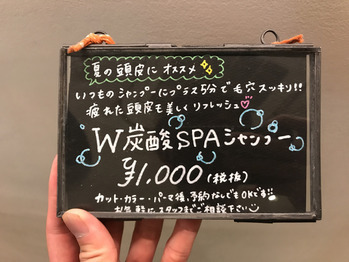 夏の頭皮にオススメ
いつものシャンプーにプラス5分で毛穴スッキリ!!
疲れた頭皮も美しくリフレッシュ♡
W炭酸SPAシャンプー
¥1,000(税抜)
カット・カラー・パーマ後、予約なしでもOKです!!
お気軽にスタッフまでご相談下さい